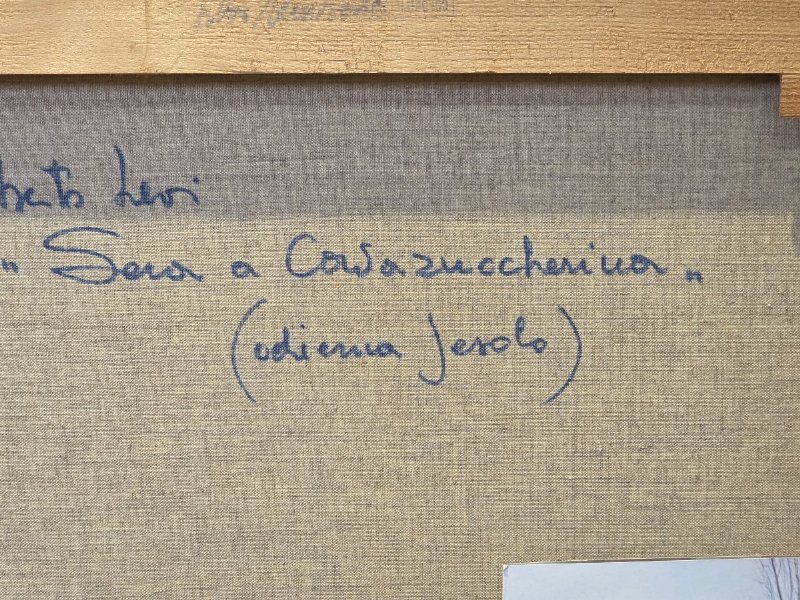 Levi
„ Sera a Cavazuccherina „
(odierna Jesolo)